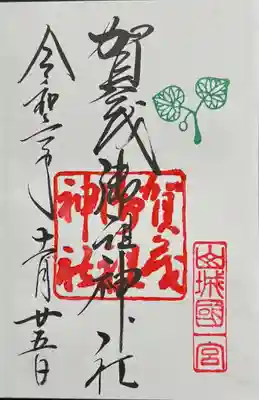 山城國一宮
賀茂御祖神社
賀茂御祖神社
令和二年十二月廿五日